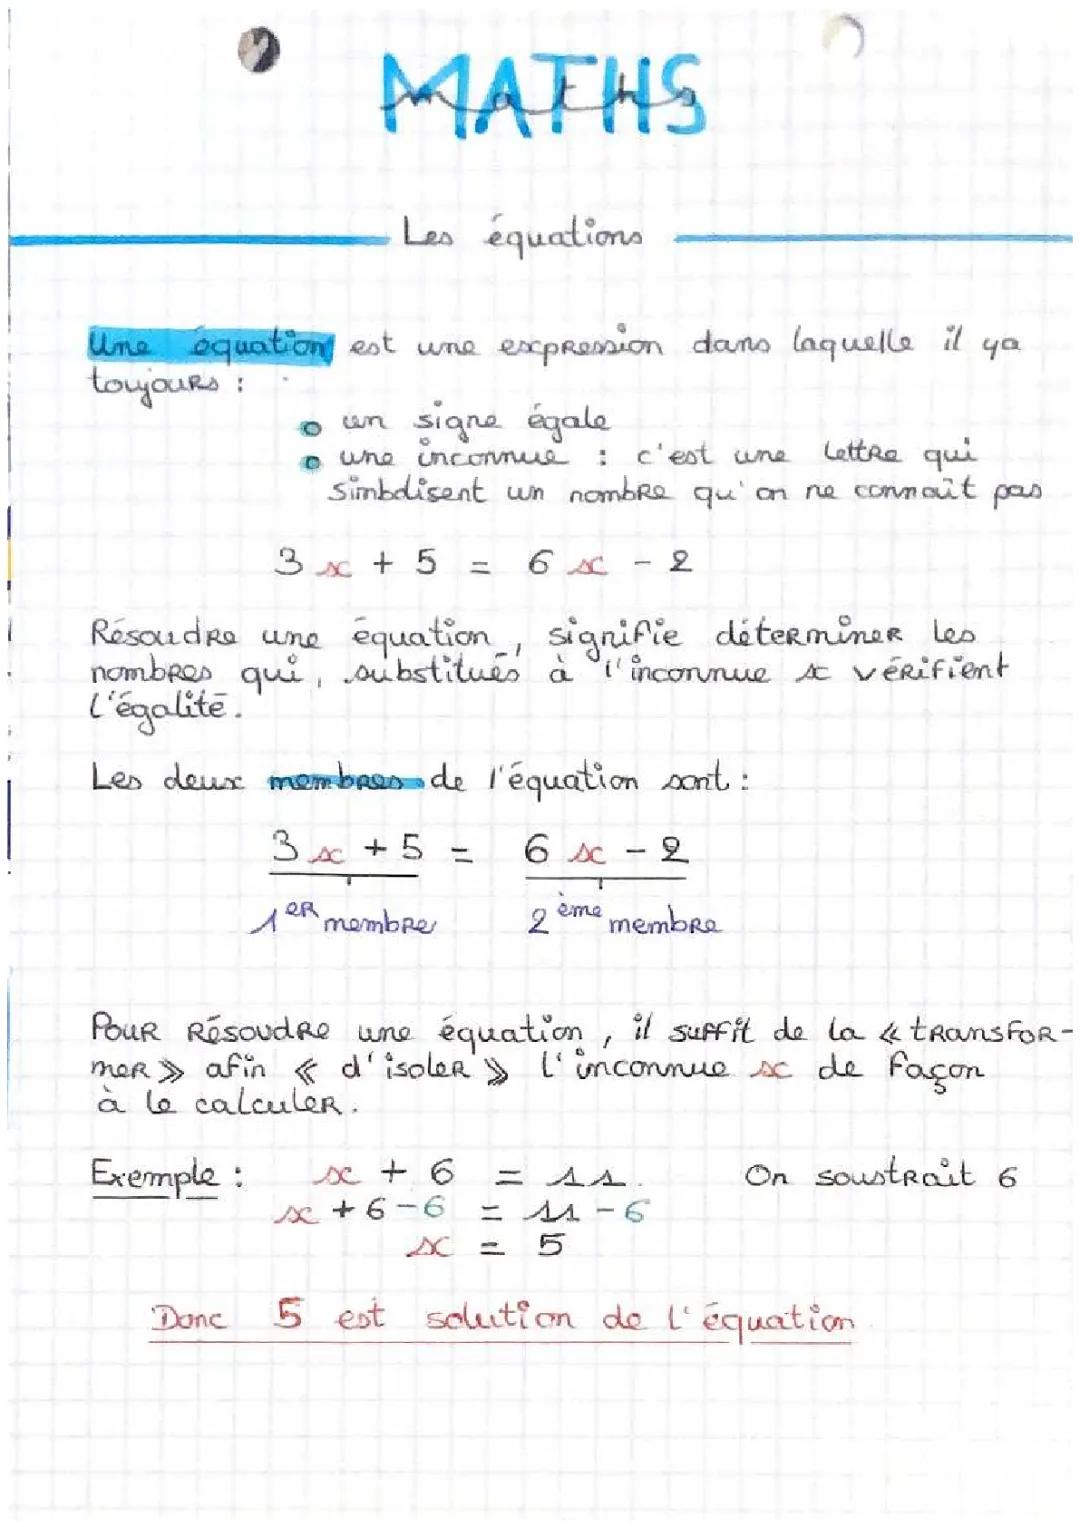 MATHS
maths
Les équations
Une équation est une expression dans laquelle il ya
toujours :
un signe égale
une inconnue : c'est une lettre qui
simbolisent un nombre qu'on ne connaît pas
3x + 5 = 6x - 2
Résoudre une équation, signifie déterminer les
nombres qui, substitués à l'inconnue x vérifient
l'égalité.
Les deux membres de l'équation sont :
3x + 5 = 6x - 2
1er membre 2ème membre
Pour résoudre une équation, il suffit de la « transfor-
mer » afin « d'isoler » l'inconnue x de façon
à le calculer.
Exemple : x + 6 = 11. On soustraît 6
x + 6 - 6 = 11 - 6
x = 5
Donc 5 est solution de l'équation.